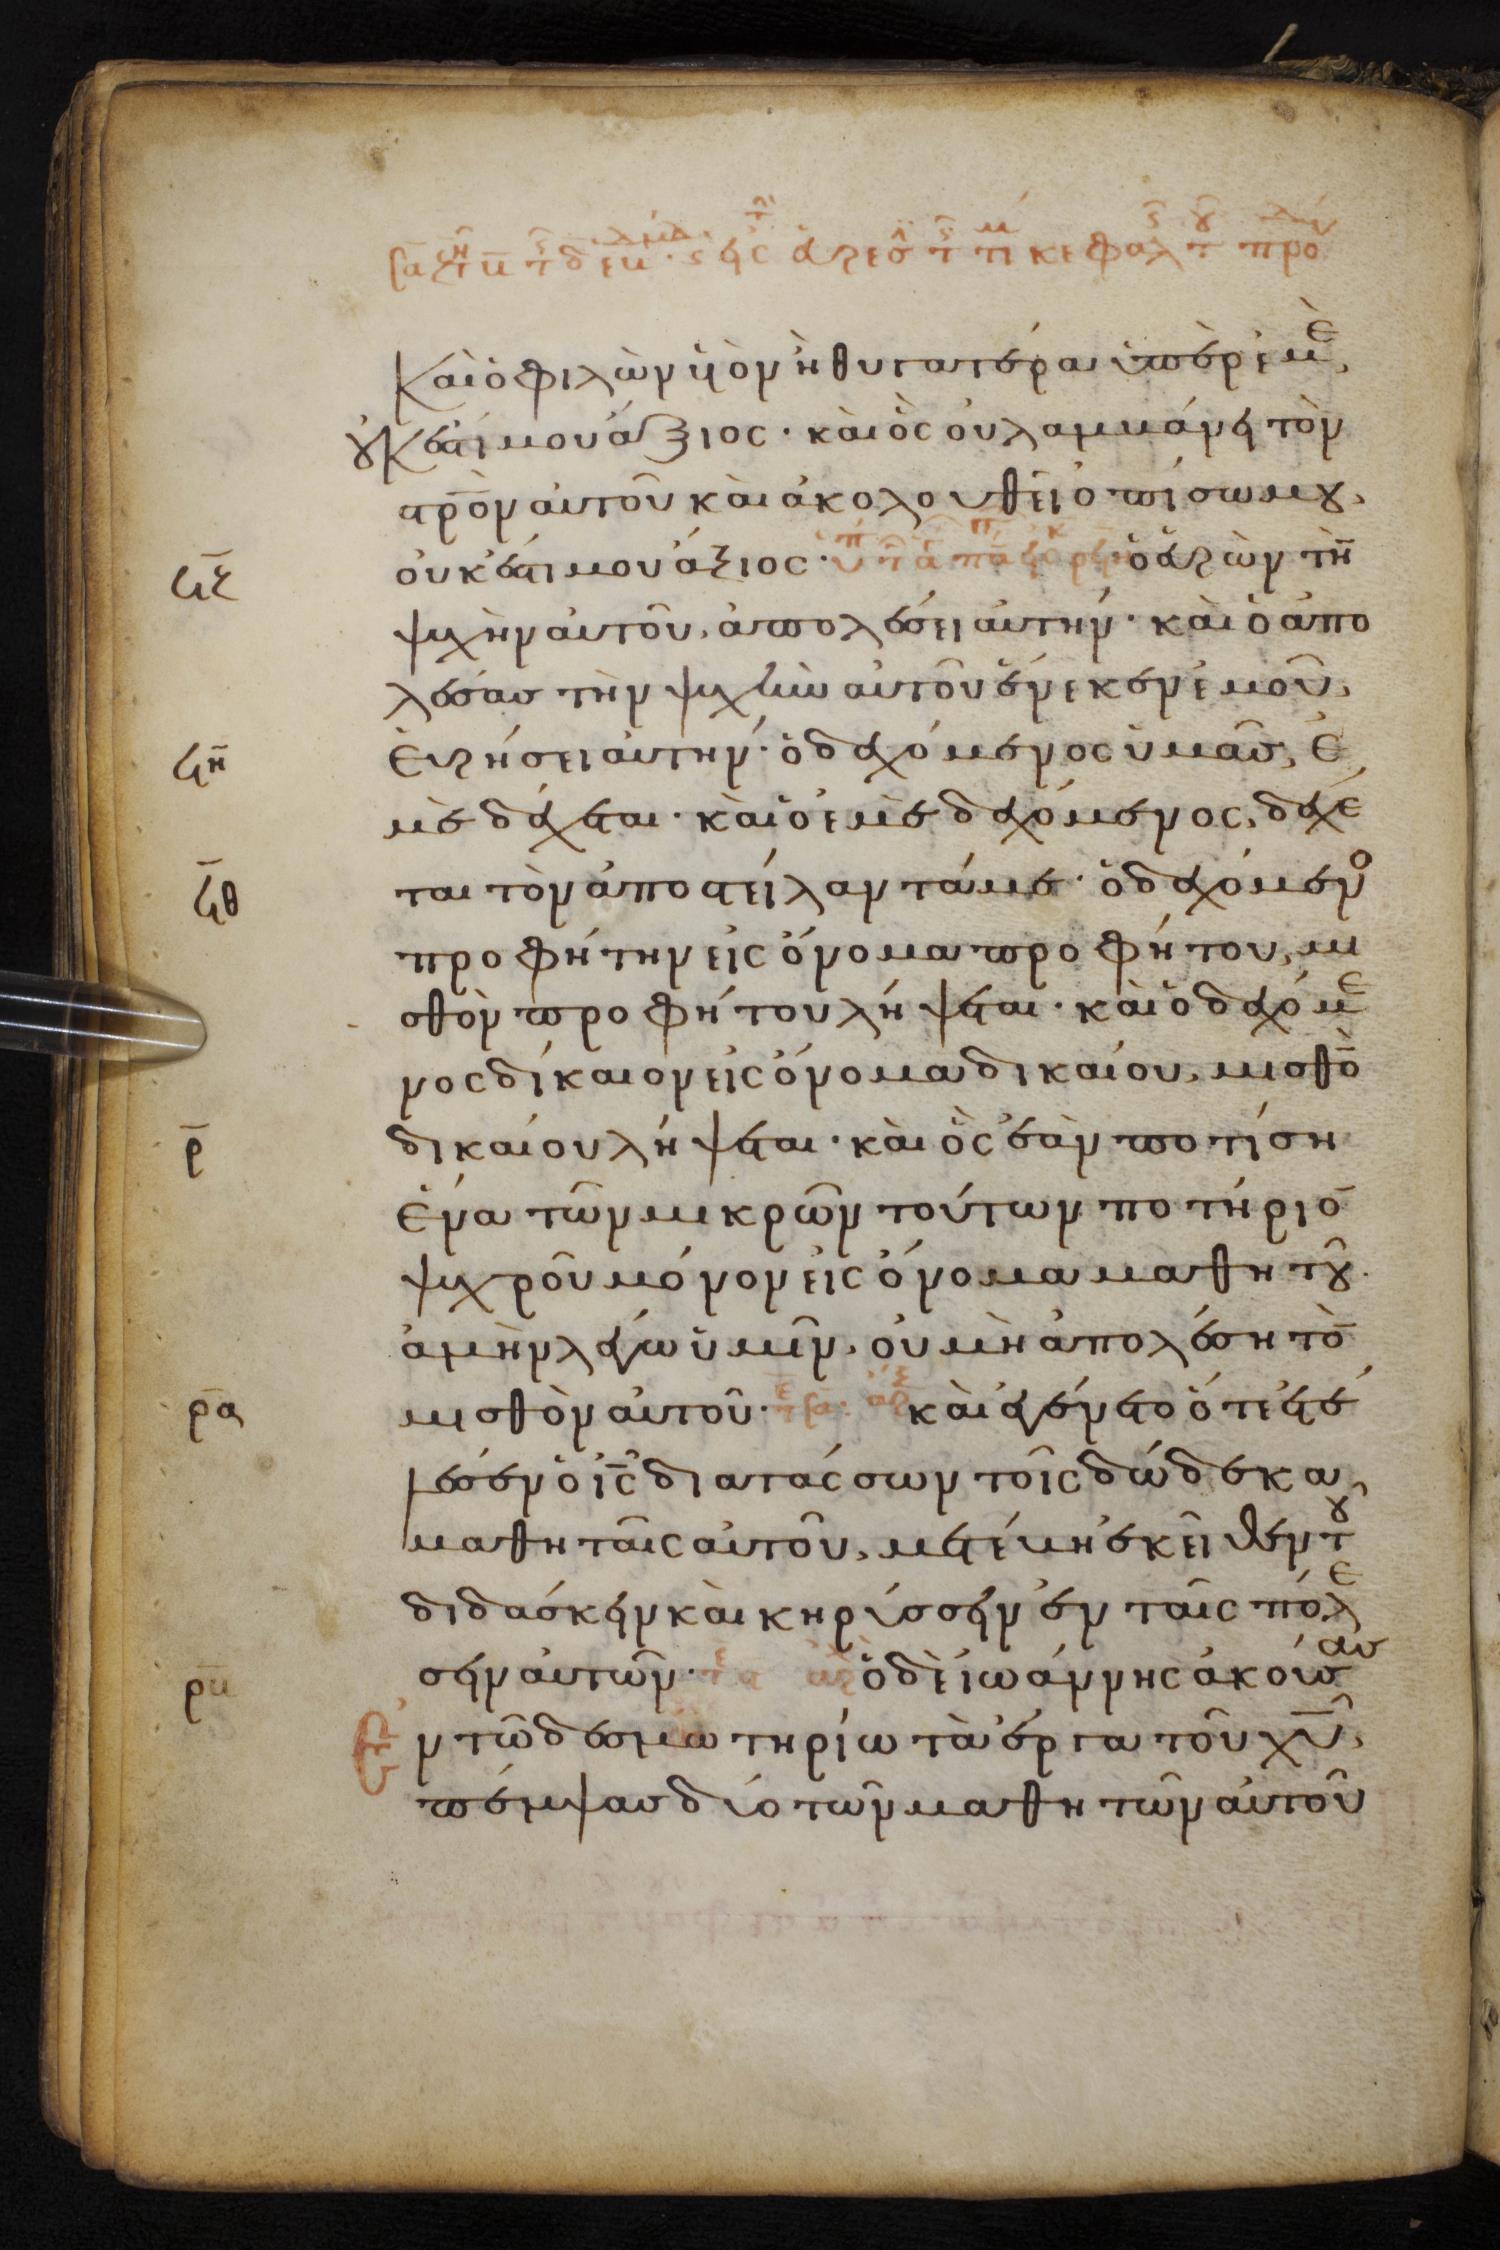 Καὶ ὁ φιλῶν ὑὸν ἢ θυγατέρα ὑπὲρ ἐμὲ,
οὐκ ἔστι μου ἄξιος· καὶ ὃς οὐ λαμβάνει τὸν
στ̅ρ̅ον αὐτοῦ καὶ ἀκολουθεῖ ὀπίσω μου,
οὐκ ἔστι μου ἄξιος· ὁ εὑρὼν τὴν
ϟζ
ψυχὴν αὐτοῦ, ἀπολέσει αὐτήν· καὶ ὁ ἀπο
λέσας τὴν ψυχὴν αὐτοῦ ἕνεκεν ἐμοῦ,
εὑρήσει αὐτήν· ὁ δεχόμενος ὑμᾶς, ἐ
ϟη
μὲ δέχεται· καὶ ὁ ἐμὲ δεχόμενος, δέχε
ται τὸν ἀποστείλαντά με· ὁ δεχόμενο
ϟθ
προφήτην εἰς ὄνομα προφήτου, μι
σθὸν προφήτου λήψεται· καὶ ὁ δεχόμε
νος δίκαιον εἰς ὄνομα δικαίου, μισθὸ̅
δικαίου λήψεται· καὶ ὃς ἐὰν ποτίση
ρ̅
ἕνα τῶν μικρῶν τούτων ποτήριο̅
ψυχροῦ μόνον εἰς ὄνομα μαθητοῦ.
ἀμὴν λέγω ὑμῖν, οὐ μὴ ἀπολέση τὸ̅
μισθὸν αὐτοῦ· καὶ ἐγένετο ὅτε ἐτέ
ρ̅α
λεσεν ὁ ι̅ς̅ διατάσσων τοῖς δώδεκα
μαθηταῖς αὐτοῦ, μετέβη ἐκεῖθεν τοῦ
διδάσκειν καὶ κηρύσσειν ἐν ταῖς πόλε
σειν αὐτῶν· ὁ δὲ ἰωάννης ἀκούσας
ρ̅β
ἐν τῶ δεσμωτηρίω τὰ ἔργα τοῦ χ̅υ̅,
πέμψας δύο τῶν μαθητῶν αὐτοῦ